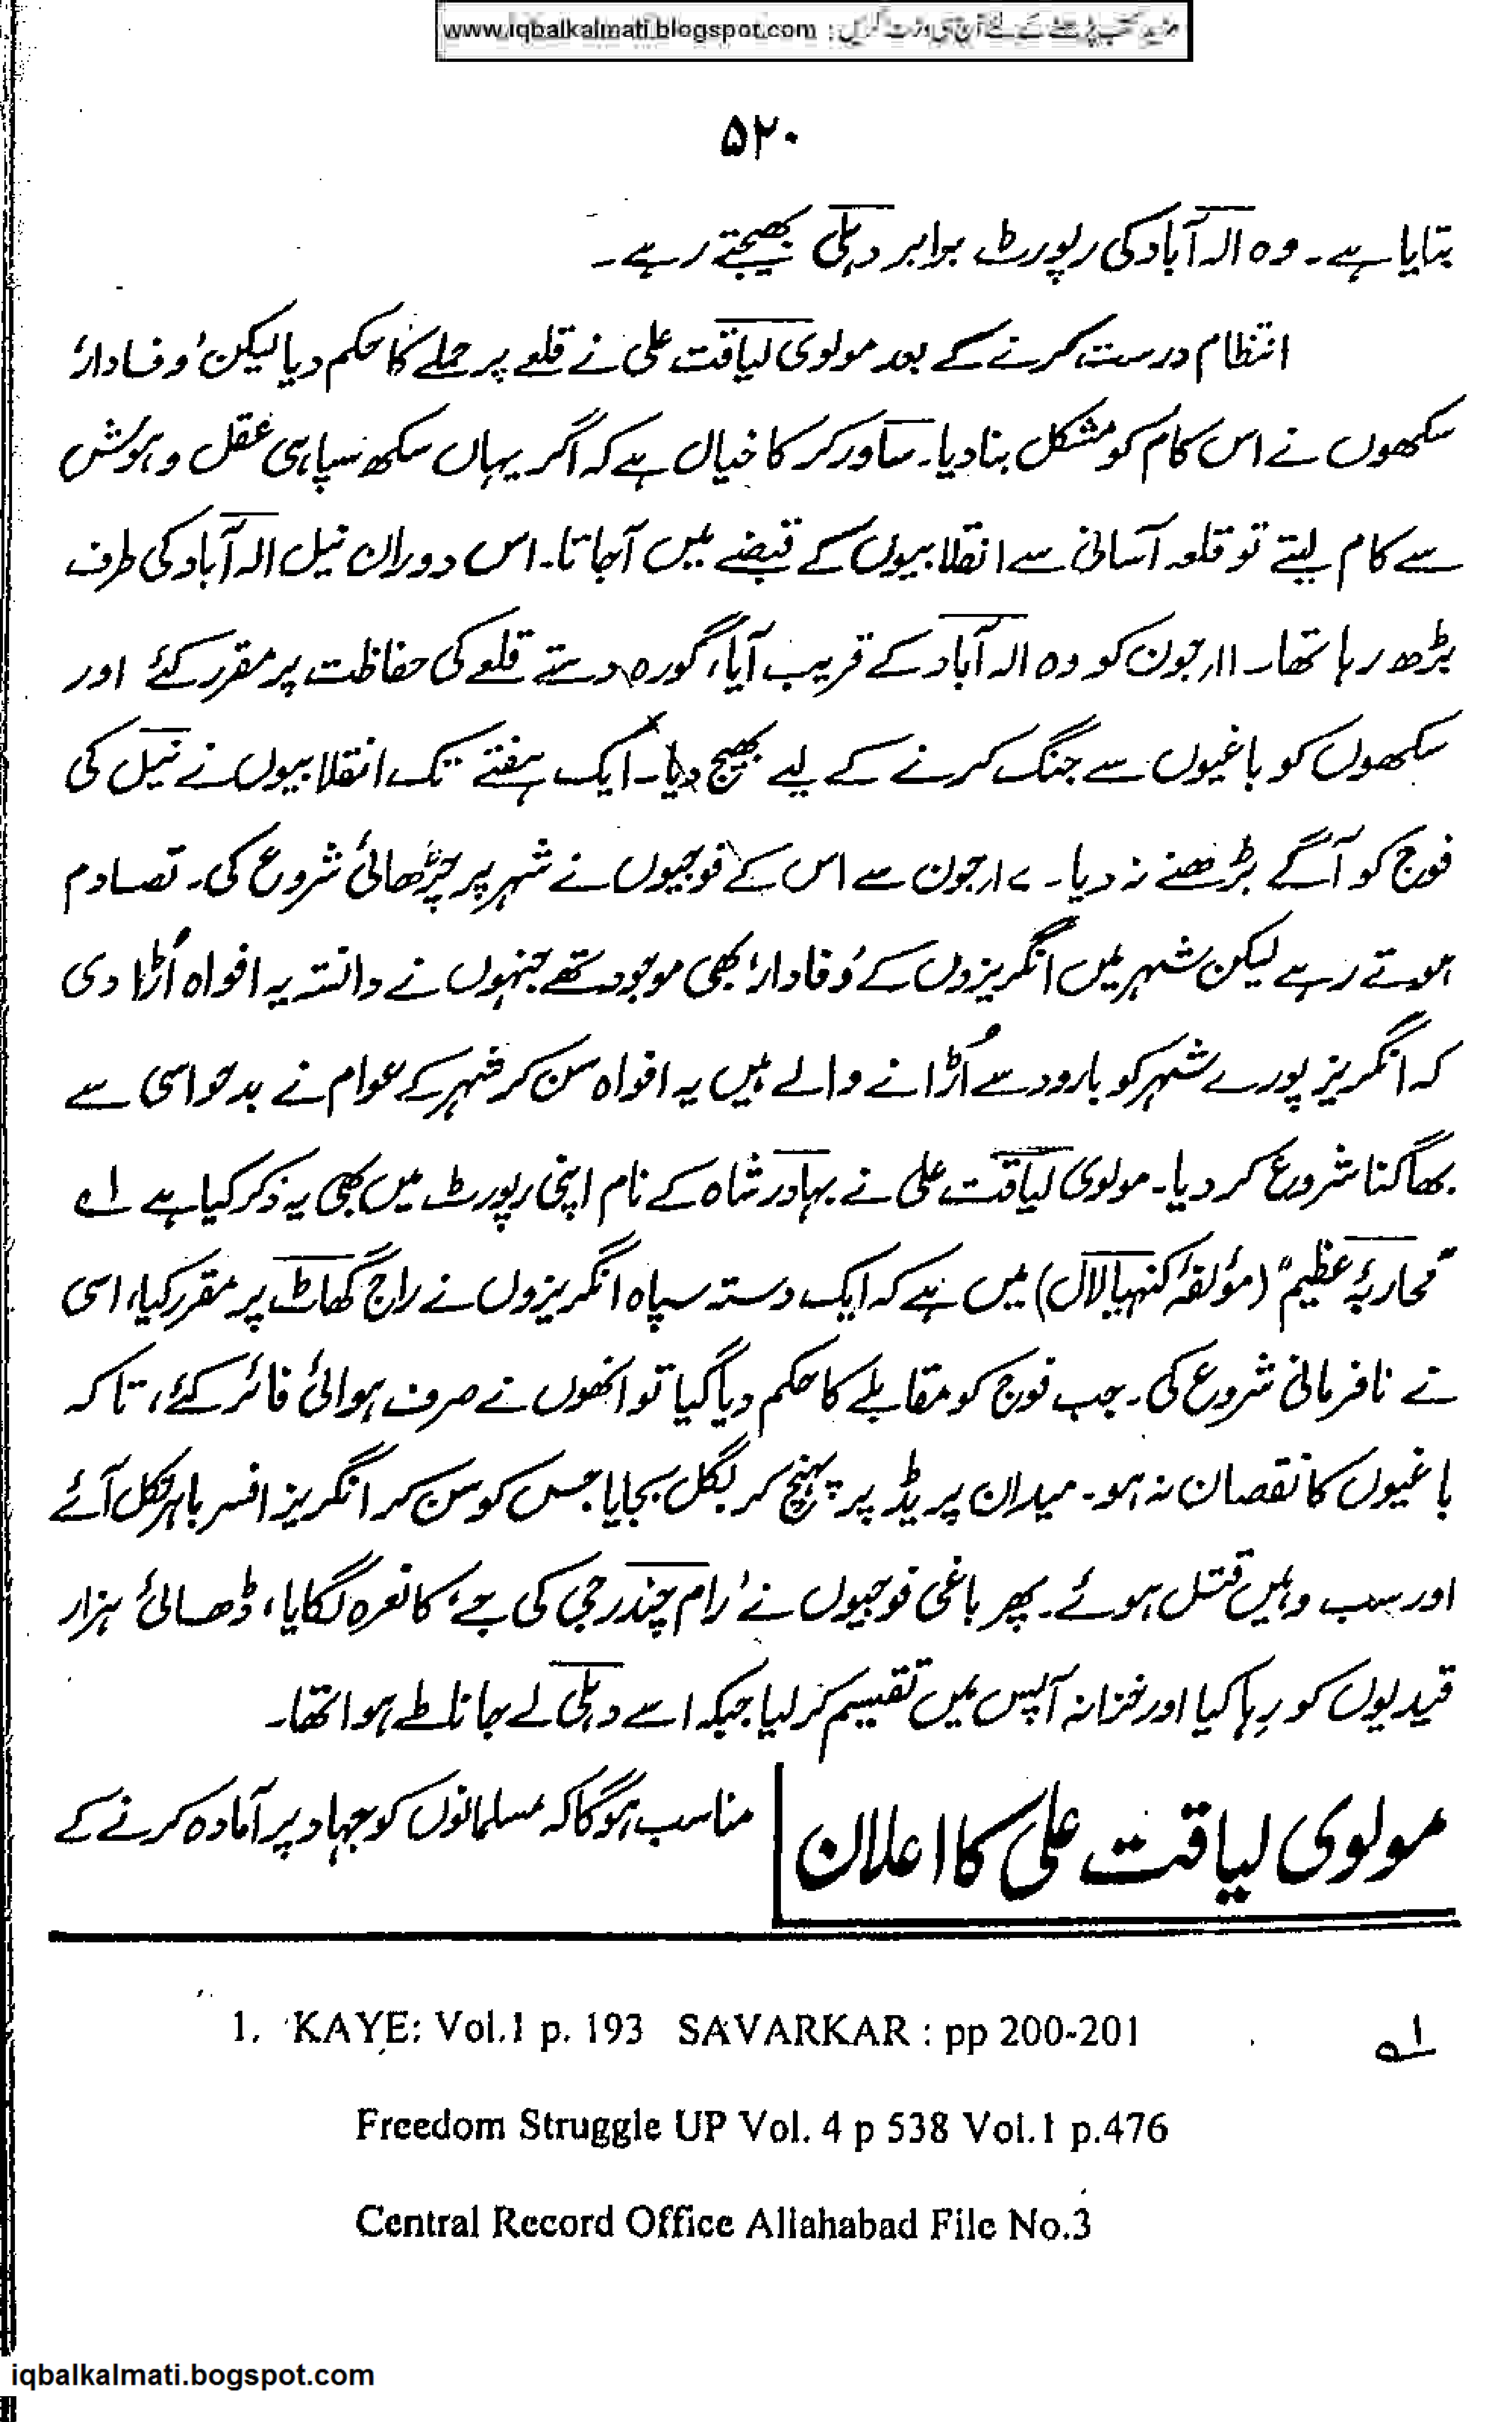 مزید کتب پڑھنے کے لئے آج ہی وزٹ کریں : www.iqbalkalmati.blogspot.com
۵۲۰
بتایا ہے۔ وہ الہ آباد کی رپورٹ برابر دہلی بھیجتے رہے۔
انتظام درست کرنے کے بعد مولوی لیاقت علی نے قلعے پر حملے کا حکم دیا لیکن ’وفادار‘
سکھوں نے اس کام کو مشکل بنا دیا۔ ساورکر کا خیال ہے کہ اگر یہاں سکھ سپاہی عقل و ہوش
سے کام لیتے تو قلعہ آسانی سے انقلابیوں کے قبضے میں آجاتا۔ اس دوران نیل الہ آباد کی طرف
بڑھ رہا تھا۔ ۱۱؍جون کو وہ الہ آباد کے قریب آیا، گورہ دستے قلعے کی حفاظت پر مقرر کئے اور
سکھوں کو باغیوں سے جنگ کرنے کے لیے بھیج دیا۔ ایک ہفتے تک انقلابیوں نے نیل کی
فوج کو آگے بڑھنے نہ دیا۔ ۱۷؍جون سے اس کے فوجیوں نے شہر پر چڑھائی شروع کی۔ تصادم
ہوتے رہے لیکن شہر میں انگریزوں کے ’وفادار‘ بھی موجود تھے جنہوں نے دانستہ یہ افواہ اُڑا دی
کہ انگریز پورے شہر کو بارود سے اُڑانے والے ہیں یہ افواہ سن کر شہر کے عوام نے بدحواسی سے
بھاگنا شروع کر دیا۔ مولوی لیاقت علی نے بہادر شاہ کے نام اپنی رپورٹ میں بھی یہ ذکر کیا ہے ۱ے
"محاربۂ عظیم" (مؤلفہ کنہیا لال) میں ہے کہ ایک دستہ سپاہ انگریزوں نے راج گھاٹ پر مقرر کیا، اسی
نے نافرمانی شروع کی۔ جب فوج کو مقابلے کا حکم دیا گیا تو انھوں نے صرف ہوائی فائر کئے، تاکہ
باغیوں کا نقصان نہ ہو۔ میدان پریڈ پر پہنچ کر بگل بجایا جس کو سن کر انگریز افسر باہر نکل آئے
اور سب وہیں قتل ہوئے۔ پھر باغی فوجیوں نے ’رام چندر جی کی جے‘ کا نعرہ لگایا، ڈھائی ہزار
قیدیوں کو رہا کیا اور خزانہ آپس میں تقسیم کر لیا جبکہ اسے دہلی لے جانا طے ہوا تھا۔
مولوی لیاقت علی کا اعلان
مناسب ہوگا کہ مسلمانوں کو جہاد پر آمادہ کرنے کے
۱ے 1. KAYE: Vol.1 p. 193 SAVARKAR : pp 200-201
Freedom Struggle UP Vol. 4 p 538 Vol.1 p.476
Central Record Office Allahabad File No.3
iqbalkalmati.bogspot.com